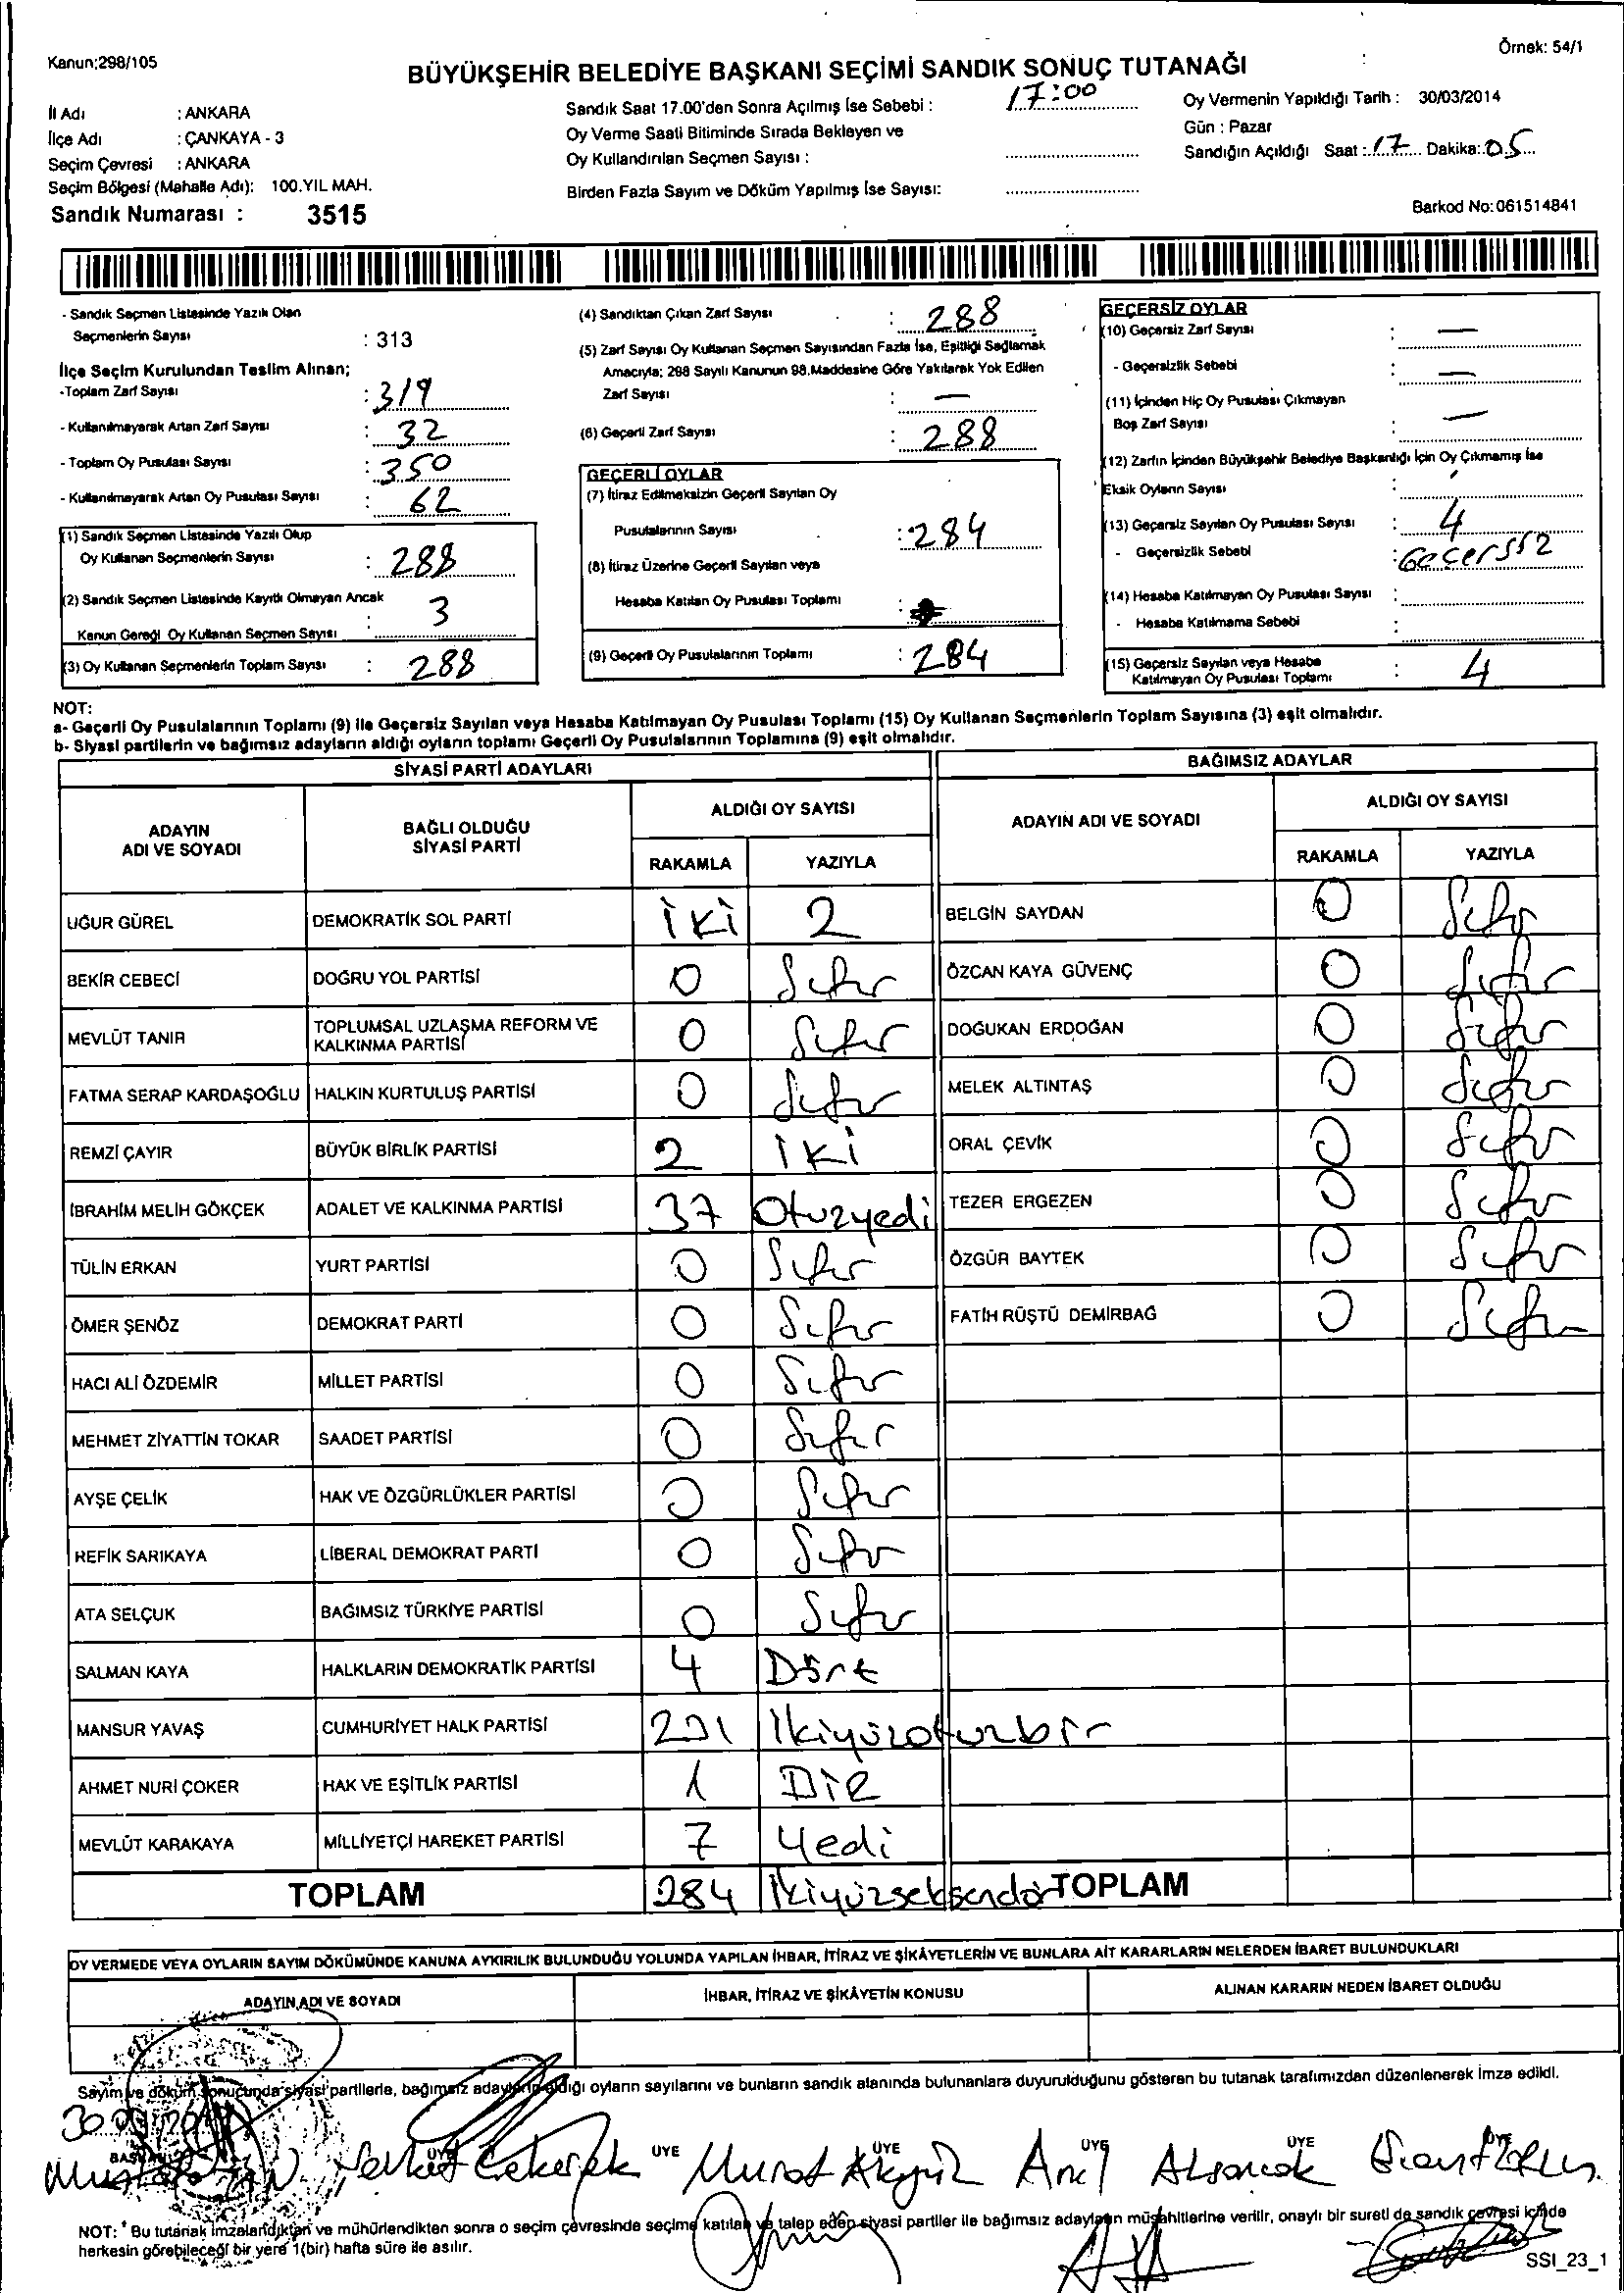 Kanun;298/105
Örnek: 54/1
BÜYÜKŞEHİR BELEDİYE BAŞKANI SEÇİMİ SANDIK SONUÇ TUTANAĞI
İl Adı : ANKARA
İlçe Adı : ÇANKAYA - 3
Seçim Çevresi : ANKARA
Seçim Bölgesi (Mahalle Adı): 100.YIL MAH.
Sandık Numarası : 3515
Sandık Saat 17.00'den Sonra Açılmış İse Sebebi : 17:00
Oy Verme Saati Bitiminde Sırada Bekleyen ve
Oy Kullandırılan Seçmen Sayısı :
Birden Fazla Sayım ve Döküm Yapılmış İse Sayısı:
Oy Vermenin Yapıldığı Tarih : 30/03/2014
Gün : Pazar
Sandığın Açıldığı Saat : 17 Dakika: 05
Barkod No:061514841
- Sandık Seçmen Listesinde Yazılı Olan
Seçmenlerin Sayısı : 313
İlçe Seçim Kurulundan Teslim Alınan;
-Toplam Zarf Sayısı : 319
- Kullanılmayarak Artan Zarf Sayısı : 32
- Toplam Oy Pusulası Sayısı : 350
- Kullanılmayarak Artan Oy Pusulası Sayısı : 62
(1) Sandık Seçmen Listesinde Yazılı Olup
Oy Kullanan Seçmenlerin Sayısı : 288
(2) Sandık Seçmen Listesinde Kayıtlı Olmayan Ancak
Kanun Gereği Oy Kullanan Seçmen Sayısı : 3
(3) Oy Kullanan Seçmenlerin Toplam Sayısı : 288
(4) Sandıktan Çıkan Zarf Sayısı : 288
(5) Zarf Sayısı Oy Kullanan Seçmen Sayısından Fazla İse, Eşitliği Sağlamak
Amacıyla; 298 Sayılı Kanunun 98.Maddesine Göre Yakılarak Yok Edilen
Zarf Sayısı : —
(6) Geçerli Zarf Sayısı : 288
GEÇERLİ OYLAR
(7) İtiraz Edilmeksizin Geçerli Sayılan Oy
Pusulalarının Sayısı : 284
(8) İtiraz Üzerine Geçerli Sayılan veya
Hesaba Katılan Oy Pusulası Toplamı :
(9) Geçerli Oy Pusulalarının Toplamı : 284
GEÇERSİZ OYLAR
(10) Geçersiz Zarf Sayısı : —
- Geçersizlik Sebebi : —
(11) İçinden Hiç Oy Pusulası Çıkmayan
Boş Zarf Sayısı : —
(12) Zarfın İçinden Büyükşehir Belediye Başkanlığı İçin Oy Çıkmamış İse
Eksik Oyların Sayısı :
(13) Geçersiz Sayılan Oy Pusulası Sayısı : 4
- Geçersizlik Sebebi : Geçersiz
(14) Hesaba Katılmayan Oy Pusulası Sayısı :
- Hesaba Katılmama Sebebi :
(15) Geçersiz Sayılan veya Hesaba
Katılmayan Oy Pusulası Toplamı : 4
NOT:
a- Geçerli Oy Pusulalarının Toplamı (9) ile Geçersiz Sayılan veya Hesaba Katılmayan Oy Pusulası Toplamı (15) Oy Kullanan Seçmenlerin Toplam Sayısına (3) eşit olmalıdır.
b- Siyasi partilerin ve bağımsız adayların aldığı oyların toplamı Geçerli Oy Pusulalarının Toplamına (9) eşit olmalıdır.
SİYASİ PARTİ ADAYLARI
ADAYIN ADI VE SOYADI BAĞLI OLDUĞU SİYASİ PARTİ ALDIĞI OY SAYISI
RAKAMLA YAZIYLA
UĞUR GÜREL DEMOKRATİK SOL PARTİ iki 2
BEKİR CEBECİ DOĞRU YOL PARTİSİ 0 Sıfır
MEVLÜT TANIR TOPLUMSAL UZLAŞMA REFORM VE KALKINMA PARTİSİ 0 Sıfır
FATMA SERAP KARDAŞOĞLU HALKIN KURTULUŞ PARTİSİ 0 Sıfır
REMZİ ÇAYIR BÜYÜK BİRLİK PARTİSİ 2 iki
İBRAHİM MELİH GÖKÇEK ADALET VE KALKINMA PARTİSİ 37 Otuzyedi
TÜLİN ERKAN YURT PARTİSİ 0 Sıfır
ÖMER ŞENÖZ DEMOKRAT PARTİ 0 Sıfır
HACI ALİ ÖZDEMİR MİLLET PARTİSİ 0 Sıfır
MEHMET ZİYATTİN TOKAR SAADET PARTİSİ 0 Sıfır
AYŞE ÇELİK HAK VE ÖZGÜRLÜKLER PARTİSİ 0 Sıfır
REFİK SARIKAYA LİBERAL DEMOKRAT PARTİ 0 Sıfır
ATA SELÇUK BAĞIMSIZ TÜRKİYE PARTİSİ 0 Sıfır
SALMAN KAYA HALKLARIN DEMOKRATİK PARTİSİ 4 Dört
MANSUR YAVAŞ CUMHURİYET HALK PARTİSİ 231 İkiyüzotuzbir
AHMET NURİ ÇOKER HAK VE EŞİTLİK PARTİSİ 1 Bir
MEVLÜT KARAKAYA MİLLİYETÇİ HAREKET PARTİSİ 7 Yedi
TOPLAM 284 İkiyüzseksendör
BAĞIMSIZ ADAYLAR
ADAYIN ADI VE SOYADI ALDIĞI OY SAYISI
RAKAMLA YAZIYLA
BELGİN SAYDAN 0 Sıfır
ÖZCAN KAYA GÜVENÇ 0 Sıfır
DOĞUKAN ERDOĞAN 0 Sıfır
MELEK ALTINTAŞ 0 Sıfır
ORAL ÇEVİK 0 Sıfır
TEZER ERGEZEN 0 Sıfır
ÖZGÜR BAYTEK 0 Sıfır
FATİH RÜŞTÜ DEMİRBAĞ 0 Sıfır
TOPLAM
OY VERMEDE VEYA OYLARIN SAYIM DÖKÜMÜNDE KANUNA AYKIRILIK BULUNDUĞU YOLUNDA YAPILAN İHBAR, İTİRAZ VE ŞİKÂYETLERİN VE BUNLARA AİT KARARLARIN NELERDEN İBARET BULUNDUKLARI
ADAYIN ADI VE SOYADI İHBAR, İTİRAZ VE ŞİKÂYETİN KONUSU ALINAN KARARIN NEDEN İBARET OLDUĞU
Sayım ve döküm sonucunda siyasi partilerle, bağımsız adayların aldığı oyların sayılarını ve bunların sandık alanında bulunanlara duyurulduğunu gösteren bu tutanak tarafımızdan düzenlenerek imza edildi.
BAŞKAN ÜYE ÜYE ÜYE ÜYE ÜYE ÜYE
Murat Akgül Anıl Alsancak
NOT: * Bu tutanak imzalandıktan ve mühürlendikten sonra o seçim çevresinde seçime katılan ve talep eden siyasi partiler ile bağımsız adayların müşahitlerine verilir, onaylı bir sureti de sandık çevresi içinde
herkesin görebileceği bir yere 1(bir) hafta süre ile asılır.
SSI_23_1